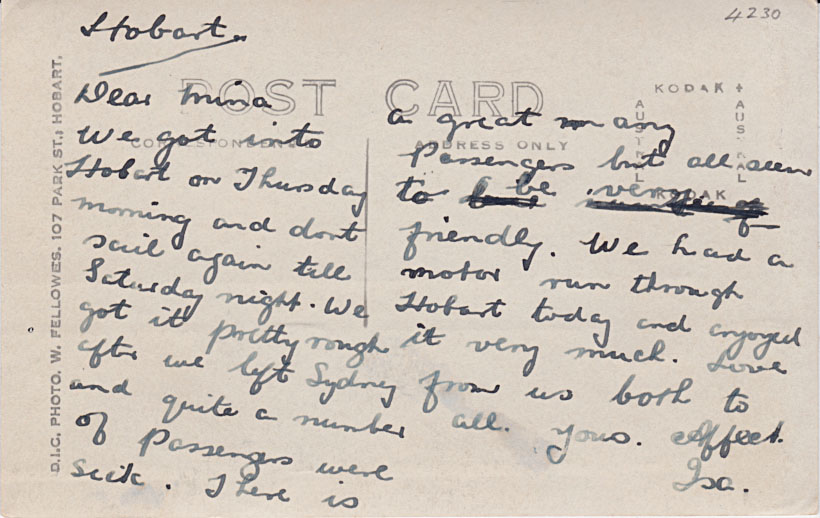 4230
Hobart.
POST CARD
CORRESPONDENCE
ADDRESS ONLY
KODAK
AUSTRAL
AUSTRAL
KODAK
D.I.C. PHOTO. W. FELLOWES. 107 PARK ST., HOBART.
Dear Mina
We got into
Hobart on Thursday
morning and dont
sail again till
Saturday night. We
got it pretty rough
after we left Sydney
and quite a number
of Passengers were
sick. There is
a great many
Passengers but all seem
to be very
friendly. We had a
motor run through
Hobart today and enjoyed
it very much. Love
from us both to
all. Yours. Affect.
Isa.